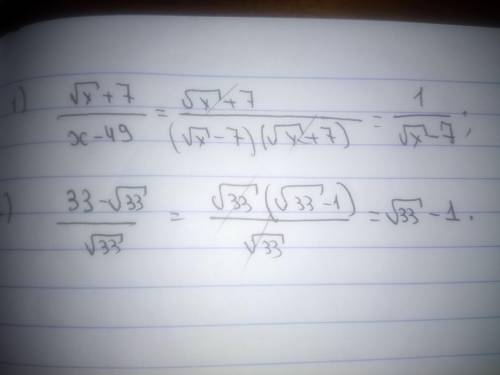 1) (√x + 7)/(x - 49) = (√x + 7)/((√x - 7)(√x + 7)) = 1/(√x - 7);
) (33 - √33)/√33 = (√33 (√33 - 1))/√33 = √33 - 1.